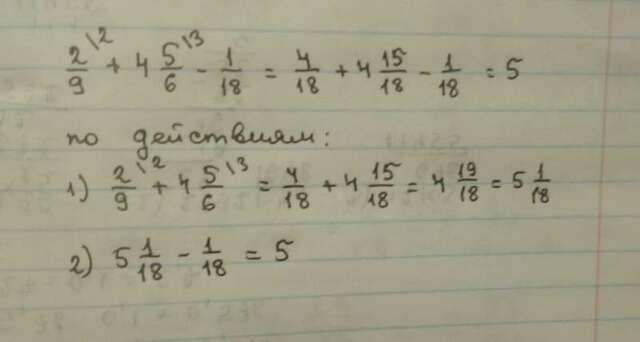 2/9 \2 + 4 5/6 \3 - 1/18 = 4/18 + 4 15/18 - 1/18 = 5
по действиям:
1) 2/9 \2 + 4 5/6 \3 = 4/18 + 4 15/18 = 4 19/18 = 5 1/18
2) 5 1/18 - 1/18 = 5